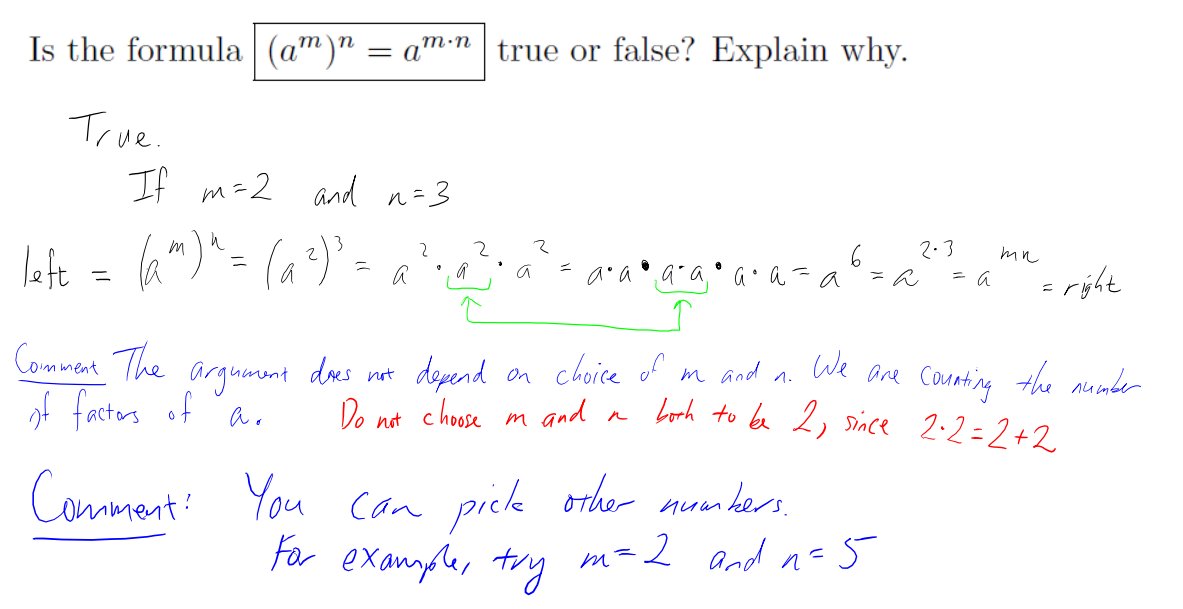 Is the formula (a^m)^n = a^{m·n} true or false? Explain why.
True.
If m=2 and n=3
left = (a^m)^n = (a^2)^3 = a^2 · a^2 · a^2 = a·a • a·a • a·a = a^6 = a^{2·3} = a^{mn} = right
Comment The argument does not depend on choice of m and n. We are counting the number
of factors of a. Do not choose m and n both to be 2, since 2·2=2+2
Comment: You can pick other numbers.
For example, try m=2 and n=5